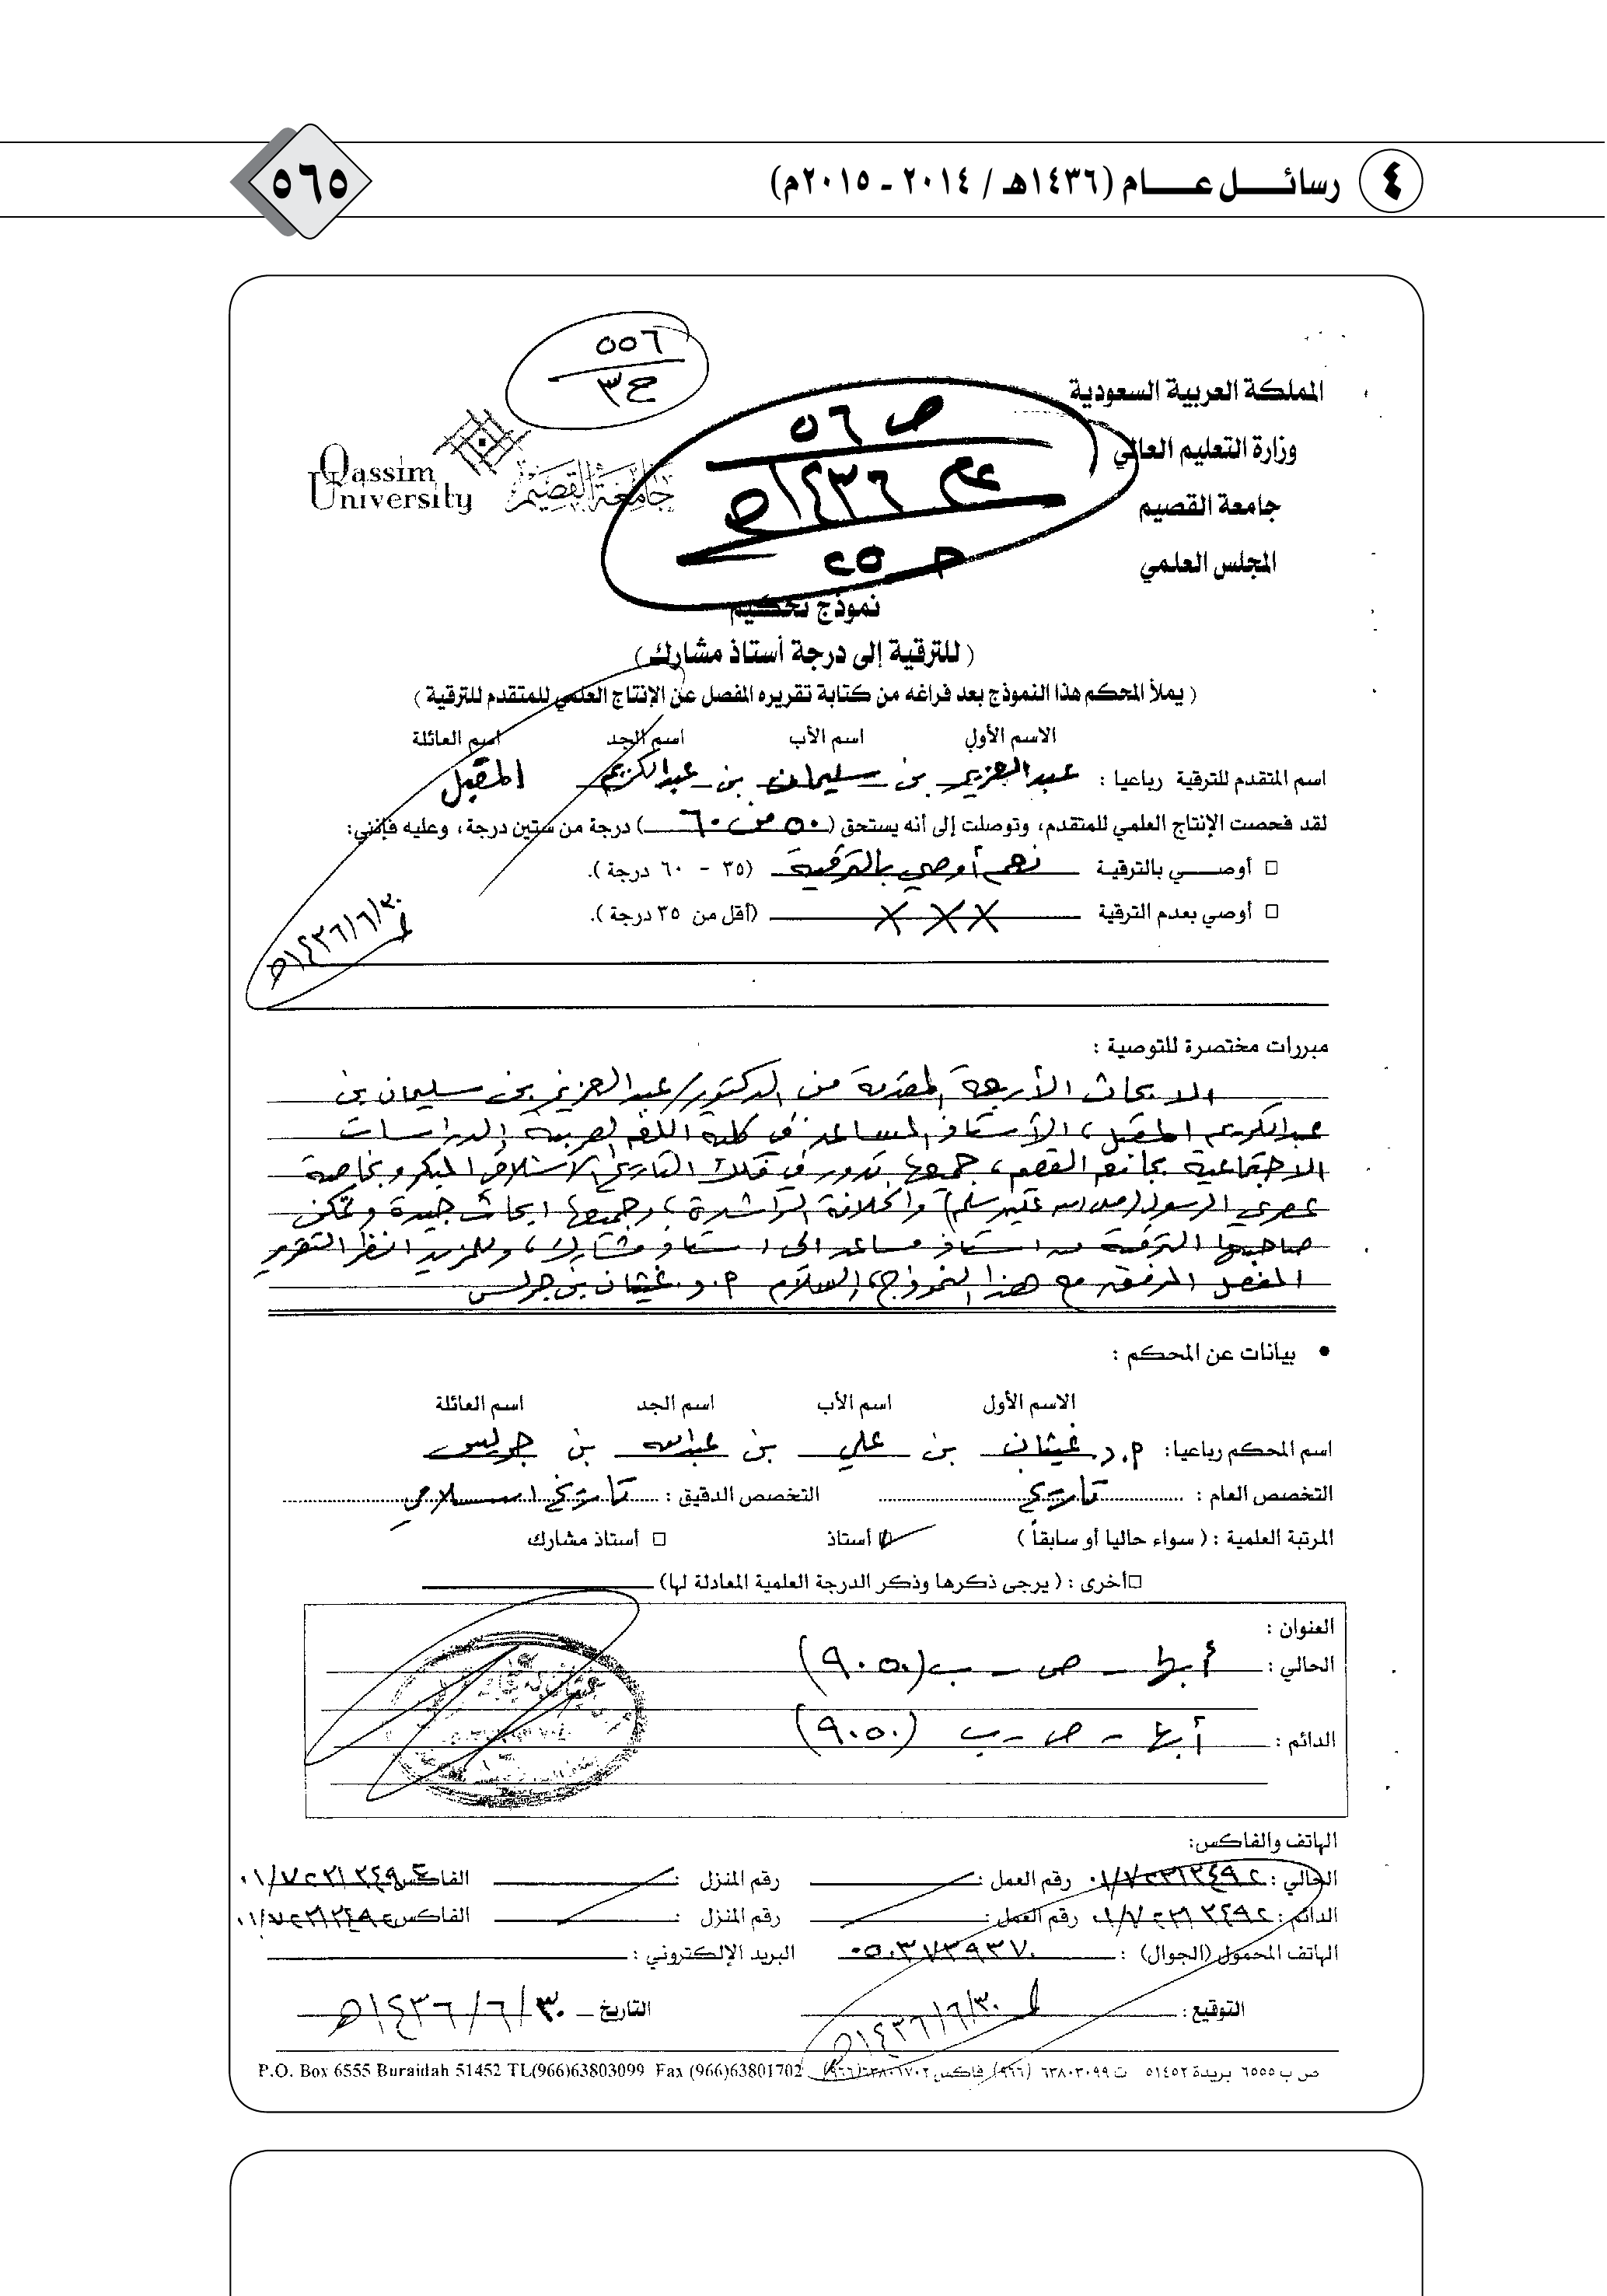 ٤ رسائـــل عـــام (١٤٣٦هـ / ٢٠١٤ ـ ٢٠١٥م)
٥٦٥
٥٥٦
ح٣
المملكة العربية السعودية
ص ٥٦
وزارة التعليم العالي
عام ١٤٣٦هـ
Qassim
University
جامعة القصيم
جامعة القصيم
المجلس العلمي
نموذج تحكيم
( للترقية إلى درجة أستاذ مشارك)
( يملأ المحكم هذا النموذج بعد فراغه من كتابة تقريره المفصل عن الإنتاج العلمي للمتقدم للترقية )
الاسم الأول اسم الأب اسم الجد اسم العائلة
اسم المتقدم للترقية رباعيا : عبدالعزيز بن سليمان بن عبدالكريم المقبل
لقد فحصت الإنتاج العلمي للمتقدم، وتوصلت إلى أنه يستحق (٥٠ من ٦٠) درجة من ستين درجة، وعليه فإنني:
□ أوصـــي بالترقيـة نعم أوصي بالترقية (٣٥ - ٦٠ درجة ).
□ أوصي بعدم الترقية X X X (أقل من ٣٥ درجة ).
١٤٣٦/٦/٣٠هـ
مبررات مختصرة للتوصية :
الابحاث الأربعة المقدمة من الدكتور/ عبدالعزيز بن سليمان بن
عبدالكريم المقبل، الأستاذ المساعد في كلية اللغة العربية والدراسات
الاجتماعية بجامعة القصيم، جميعها تدور في فلك التاريخ الاسلامي المبكر وبخاصة
عصري الرسول (صلى الله عليه وسلم) والخلافة الراشدة، وجميعها ابحاث جيدة وتمكن
صاحبها الترقية من استاذ مساعد الى استاذ مشارك، وللمزيد انظر التقرير
المفصل المرفق مع هذا النموذج، والسلام أ.د. غيثان بن جريس
• بيانات عن المحكم :
الاسم الأول اسم الأب اسم الجد اسم العائلة
اسم المحكم رباعيا: أ.د. غيثان بن علي بن عبدالله بن جريس
التخصص العام : تاريخ التخصص الدقيق : تاريخ اسلامي
المرتبة العلمية : ( سواء حاليا أو سابقاً ) □ أستاذ □ أستاذ مشارك
□أخرى : ( يرجى ذكرها وذكر الدرجة العلمية المعادلة لها)
العنوان :
الحالي : أبها - ص - ب (٩٠٥٠)
الدائم : أبها - ص - ب (٩٠٥٠)
الهاتف والفاكس:
الحالي : ٠١٧/٢٢١٢٤٩٢ رقم العمل : رقم المنزل : الفاكس
الدائم : رقم العمل: رقم المنزل : الفاكس
الهاتف المحمول (الجوال) : ٠٥٠٣٧٣٩٣٧٠ البريد الإلكتروني :
التوقيع : ١٤٣٦/٦/٣٠هـ التاريخ ١٤٣٦/٦/٣٠هـ
P.O. Box 6555 Buraidah 51452 TL(966)63803099 Fax (966)63801702 ص ب ٦٥٥٥ بريدة ٥١٤٥٢ ت ٦٣٨٠٣٠٩٩ (٩٦٦) فاكس ٦٣٨٠١٧٠٢(٩٦٦)